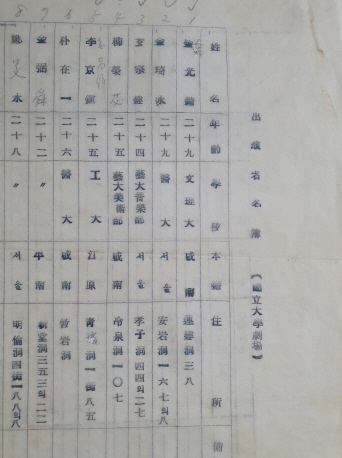 出演者名簿
(國立大學劇場)
姓名 年齡 學校 本籍 住所 備
1 金光 二十九 文理大 咸南 蓮建洞三八
2 金瑞永 二十九 醫大 서울 安岩洞一六七의八
3 二十四 藝大音樂部 서울 孝子洞四四의二七
4 柳榮 二十五 藝大美術部 咸南 冷泉洞一〇七
5 李京 二十五 工大 江原 靑 洞一街八五
6 朴在一 二十六 醫大 咸南 敦岩洞
7 金弼 二十二 〃 平南 新堂洞三五三의二二
8 永 二十八 〃 서울 明倫洞四街一八八의八